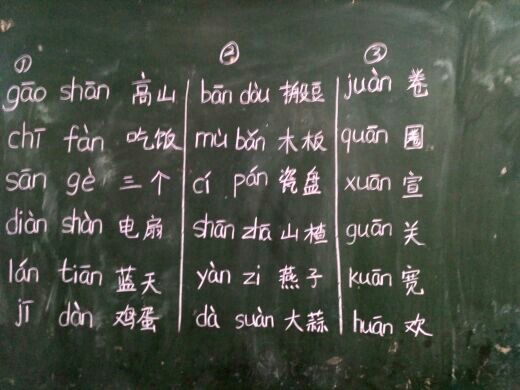 ①
gāo shān 高山
chī fàn 吃饭
sān gè 三个
diàn shàn 电扇
lán tiān 蓝天
jī dàn 鸡蛋
②
bān dòu 搬豆
mù bǎn 木板
cí pán 瓷盘
shān zhā 山楂
yàn zi 燕子
dà suàn 大蒜
③
juàn 卷
quān 圈
xuān 宣
guān 关
kuān 宽
huān 欢